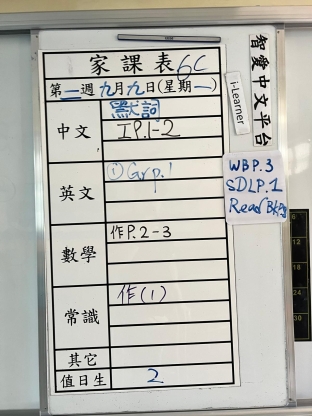 家課表 6C
第二週九月九日(星期一)
默詞
中文 工P.1-2
英文 ① Grp.1
數學 作P.2-3
常識 作(1)
其它
值日生 2
智愛中文平台
i-Learner
WBP.3
SDLP.1